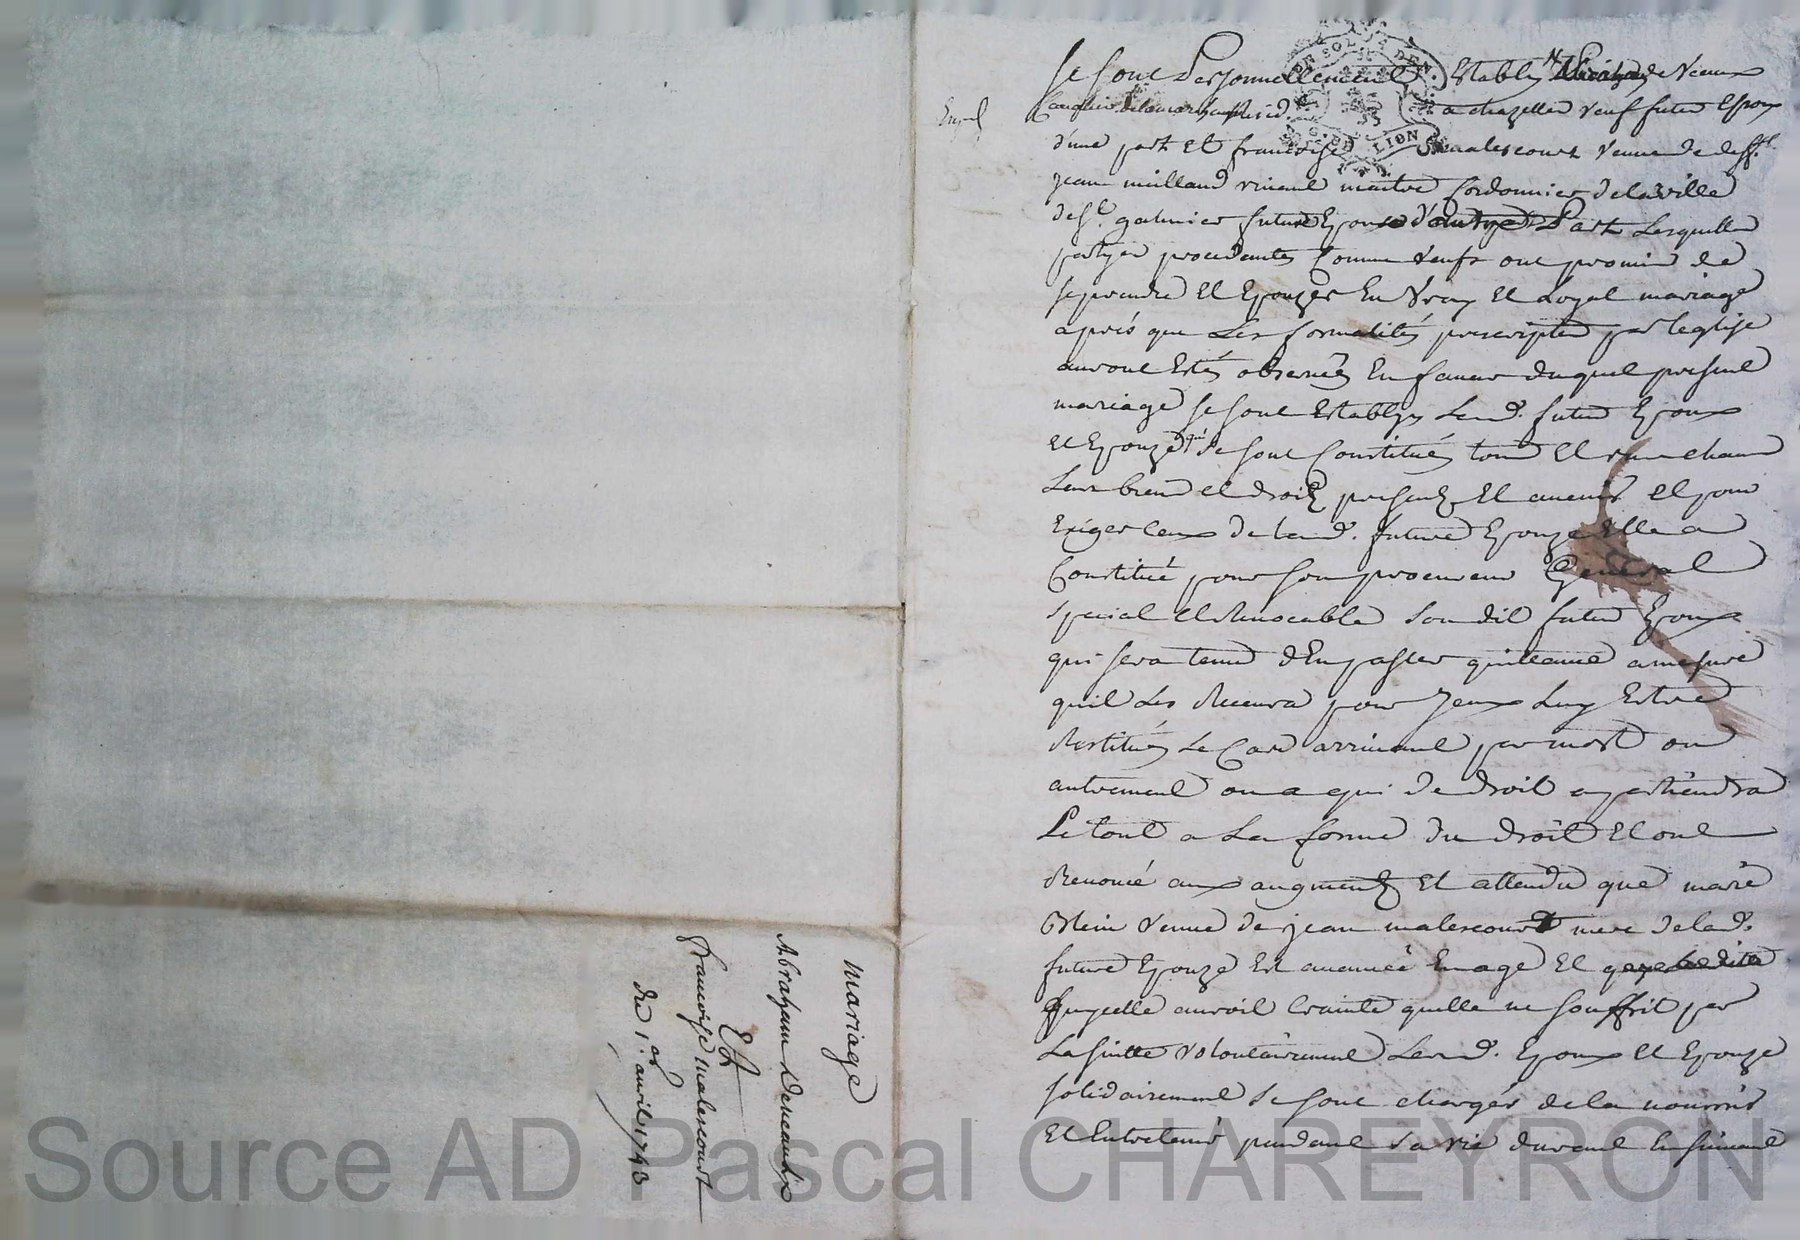 mariage
Abraham Deveaulx
Et
francoise malescourt
du 1.er avril 1743
Exped
Se sont Personnellement Establis Abraham de Veaux
a chazelle veuf futur Espoux
d'une part Et francoise malescourt veuve de deff.t
jean milland vivant maitre Cordonnier dela ville
de S.t galmier future Epouze d'autre Part Lesquelles
partyes procedantes Comme veufs ont promis de
se prendre Et Epouzer En vray Et Loyal mariage
aprés que Les formalités prescriptes par leglise
auront Estés observées En faveur duquel present
mariage se sont Establys Lesd. futur Epoux
Et Epouze qui se sont Constitués tous Et un chacun
Leurs biens et droits presents Et avenir et pour
Exiger Ceux de lad. future Epouze Elle a
Constitué pour son procureur General
special et Revocable sondit futur Epoux
qui sera tenu dEn passer quittance a mesure
quil Les Recevra pour yceux Luy Estre
Restitués Le Cas arrivant par mort ou
autrement ou a qui de droit apartiendra
Le tout a La forme du droit Et ont
Renoncé aux augments Et attendu que marie
Blein veuve de jean malescourt mere delad.
future Epouze Est avancée En age Et
quycelle auroit Crainte quelle ne souffrit par
La suitte volontairement Lesd. Epoux Et Epouze
solidairement se sont chargés de la nourrir
Et Entretenir pendant sa vie durant En suivant
Source AD Pascal CHAREYRON